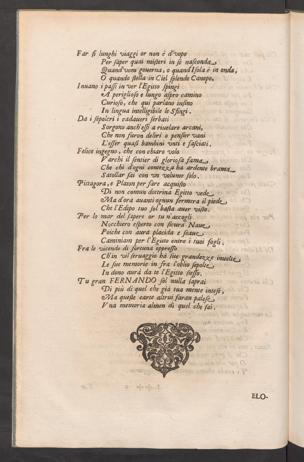 Far sì lunghi viaggi or non è d'vopo
Per saper quai misteri in sè nasconda
Quand'vom gouerna, o quand'Isola è in onda,
O quando stella in Ciel splende Canopo.
Inuano i passi in ver l'Egitto spingi
A periglioso e lungo aspro camino
Curioso, che qui parlano insino
In lingua intelligibile le Sfingi.
Da i sepolcri i cadaueri serbati
Sorgono anch'essi a riuelare arcani,
Che non furon deliri o pensier vani
L'esser quasi bambini vnti e fasciati.
Felice ingegno, che con chiaro volo
Varchi il sentier di gloriosa fama
Che chi d'ogni contezza hà ardente brama
Satollar sai con vn volume solo.
Pittagora, e Platon per fare acquisto
Di non comun dottrina Egitto vede
Ma d'ora auanti ognun fermerà il piede
Che l'Edipo tuo sol basta auer visto.
Per lo mar del sapere or tu n'accogli
Nocchiero esperto con sicura Naue
Poiche con aura placida e soaue
Caminiam per l'Egitto entro i tuoi fogli.
Fra le vicende di fortuna oppresso
Ch'in vil seruaggio hà sue grandezze inuolte
Le sue memorie in fra l'oblio sepolte
In dono aurà da te l'Egitto stesso.
Tu gran FERNANDO sol nulla saprai
Di più di quel che già tua mente intese,
Ma queste carte altrui faran palese
Vna memoria almen di quel che sai.
ELO-